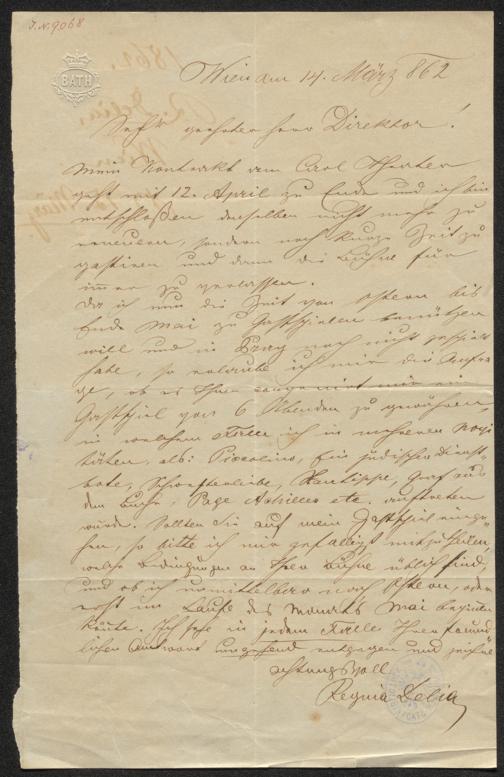 J.N. 9068
BATH
Wien am 14. März 862
Sehr geehrter Herr Direktor!
Mein Kontrakt am Carl Theater
geht mit 12. April zu Ende und ich bin
entschloßen denselben nicht mehr zu
erneuern, sondern noch kurze Zeit zu
gastiren und dann die Bühne für
immer zu verlassen.
Da ich nun die Zeit von Ostern bis
Ende Mai zu Gastspielen benützen
will und in Prag noch nicht gespielt
habe, so erlaube ich mir die Anfra
ge, ob es Ihnen mir ein
Gastspiel von 6 Abenden zu gewähren,
in welchem Falle ich in mehreren Novi
täten, als: Piccolino, Ein jüdischer Dienst
bote, Schwesterliebe, Xantippe, Graf aus
dem Buche, Page Achilles etc. auftreten
würde. Sollten Sie auf mein Gastspiel einge-
hen, so bitte ich mir gefälligst mitzutheilen,
welche Bedingungen an Ihrer Bühne üblich sind,
und ob ich unmittelbar nach Ostern, oder
erst im Laufe des Monats Mai beginnen
könte. Ich sehe in jedem Falle Ihrer freund
lichen Antwort umgehend entgegen und zeichne
achtungsvoll
Regina Delia